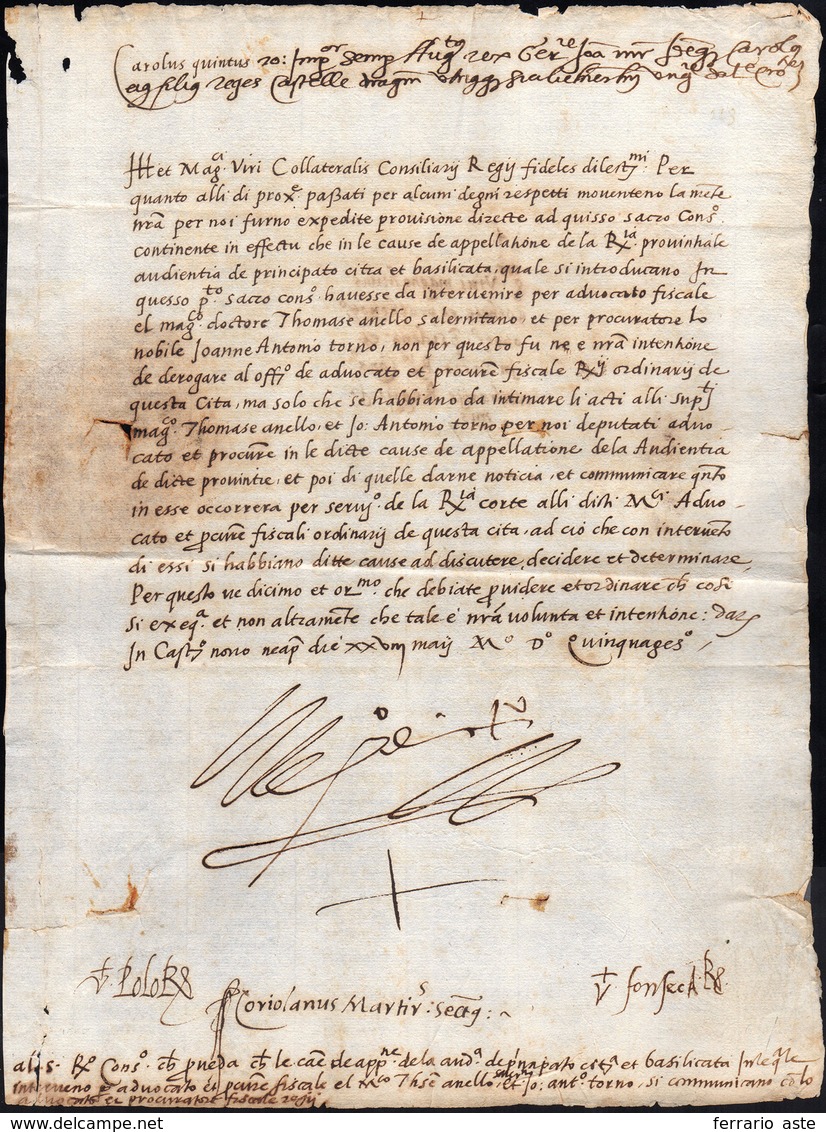 Carolus quintus ro: Imp.or Semp Aug.tus rex Ger.e Joa. mr
eius filius reges Castelle
et Mag.ci Viri Collateralis Consiliarij Regij fideles dilect.mi Per
quanto alli dì prox.e passati per alcuni degni respetti moventeno la mete
nr̃a per noi furno expedite provisione directe ad quisso sacro Cons.o
continente in effectu che in le cause de appellatione de la R.ia provintiale
audientia de principato citra et basilicata, quale si introducano In
quesso p.to sacro cons.o havesse da intervenire per advocato fiscale
el mag.co doctore Thomase anello salernitano, et per procuratore lo
nobile Joanne Antonio torno, non per questo fu ne e nr̃a intentione
de derogare al off.o de advocato et procure fiscale R.ij ordinarij de
questa Cita, ma solo che se habbiano da intimare li acti alli sup.ti
mag.co Thomase anello, et Jo: Antonio torno per noi deputati advo-
cato et procure in le dicte cause de appellatione dela Audientia
de dicte provintie, et poi di quelle darne noticia, et communicare qñto
in esse occorrera per servi.o de la R.ia corte alli dicti M.ci Advo-
cato et pcure fiscali ordinarij de questa cita, ad ciò che con intervẽto
di essi si habbiano ditte cause ad discutere, decidere et determinare,
Per questo ve dicimo et or.mo che debiate pvidere et ordinare ch̃ cosi
si exeq.a et non altramẽte che tale è nr̃a volunta et intentione: dat
In Cast.o novo neap die xxviiij maij M.o D.o Quinquages.o
D
V. Polo R
V. fonseca R.
Coriolanus Martir.s: Secr.s
al s. R.o Cons.o ch̃ pveda ch̃ le cãe de app.ne de la aud.a de principato cit.a et basilicata
interveno p advocato et pcure fiscale el M.co Thom̃se anello et Jo: ant.o torno, si communicano
advocato et procuratore fiscale regij
ferrario aste